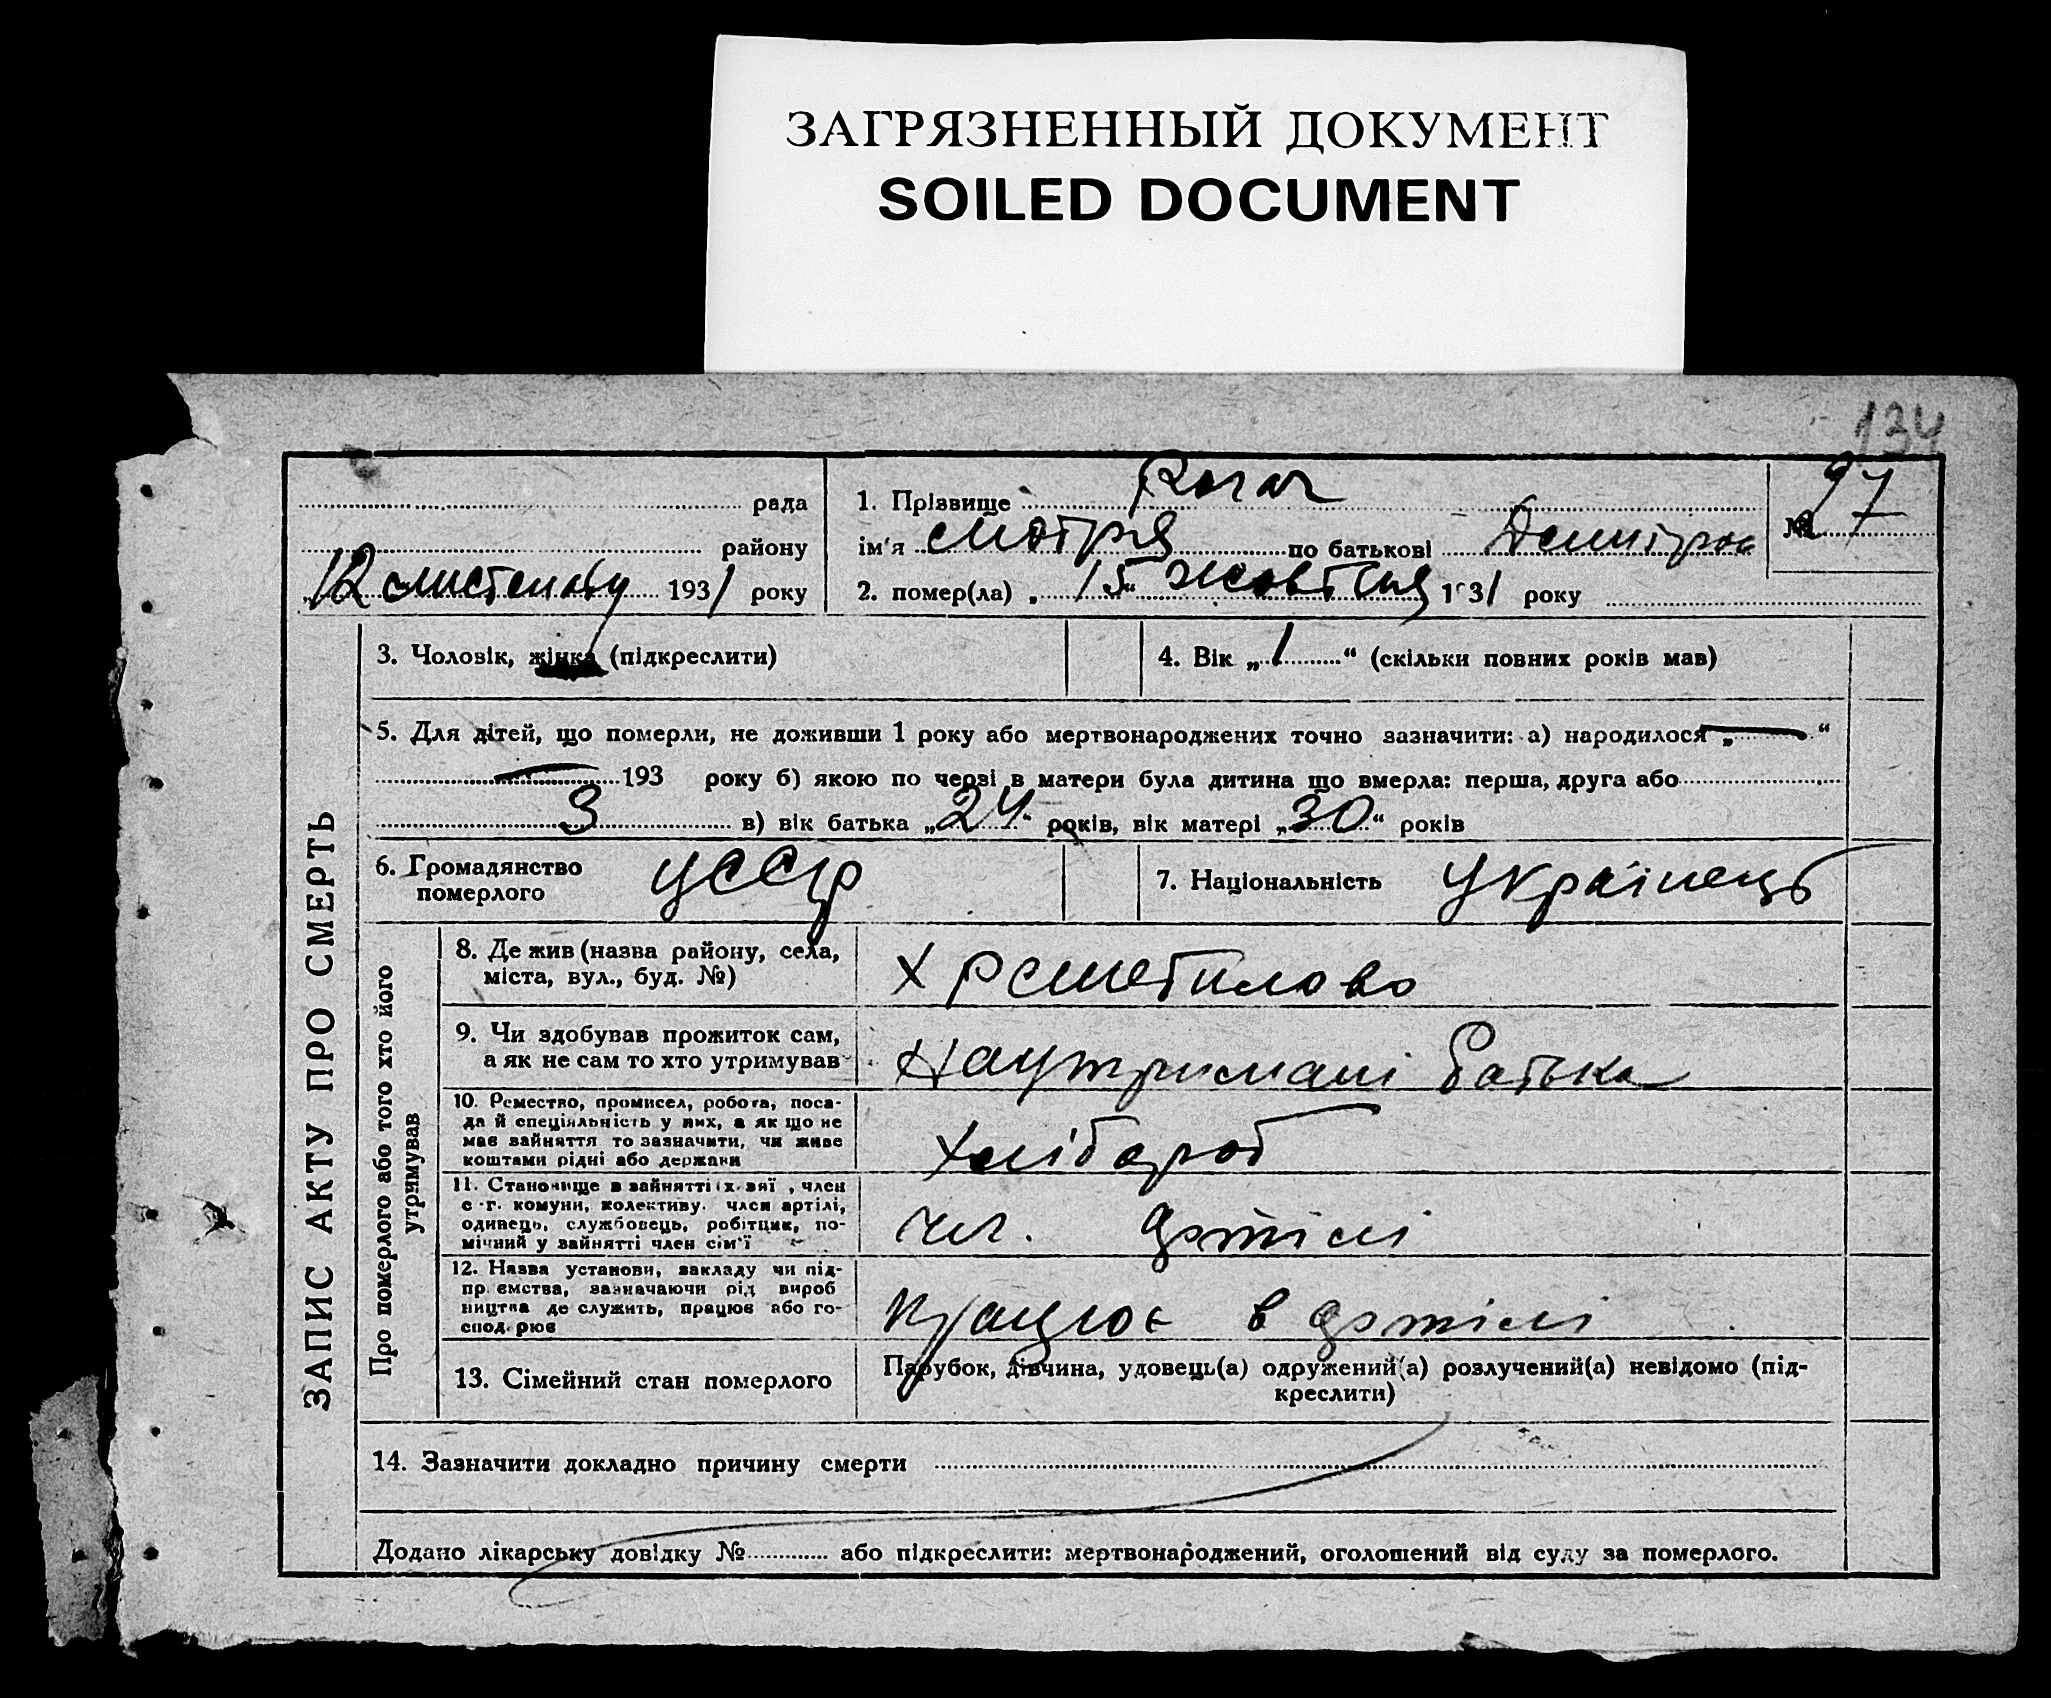 ЗАГРЯЗНЕННЫЙ ДОКУМЕНТ
SOILED DOCUMENT
134
рада
району
12 листопаду 1931 року
1. Прізвище Рогач
ім'я Мотря по батькові
2. помер(ла) „15" жовтня 1931 року
№ 97
ЗАПИС АКТУ ПРО СМЕРТЬ
3. Чоловік, жінка (підкреслити)
4. Вік „1" (скільки повних років мав)
5. Для дітей, що померли, не доживши 1 року або мертвонароджених точно зазначити: а) народилося „—"
— 193 року б) якою по черзі в матери була дитина що вмерла: перша, друга або
3 в) вік батька „24" років, вік матері „30" років
6. Громадянство померлого УССР
7. Національність Українець
Про померлого або того хто його утримував
8. Де жив (назва району, села,
міста, вул., буд. №)
9. Чи здобував прожиток сам,
а як не сам то хто утримував
На утримані батька
10. Ремество, промисел, робота, поса-
да й спеціяльність у них, а як що не
має зайняття то зазначити, чи живе
коштами рідні або держави
Хлібороб
11. Становище в зайнятті (х-зяї, член
с-г. комуни, колективу, член артілі,
одинець, службовець, робітник, по-
мічний у зайнятті член сім'ї
чл. артілі
12. Назва установи, закладу чи під-
пр ємства, зазначаючи рід вироб
ництва де служить, працює або го-
спод рює
Працює в артілі
13. Сімейний стан померлого
Парубок, дівчина, удовець(а) одружений(а) розлучений(а) невідомо (під-
креслити)
14. Зазначити докладно причину смерти
Додано лікарську довідку № або підкреслити: мертвонароджений, оголошений від суду за померлого.